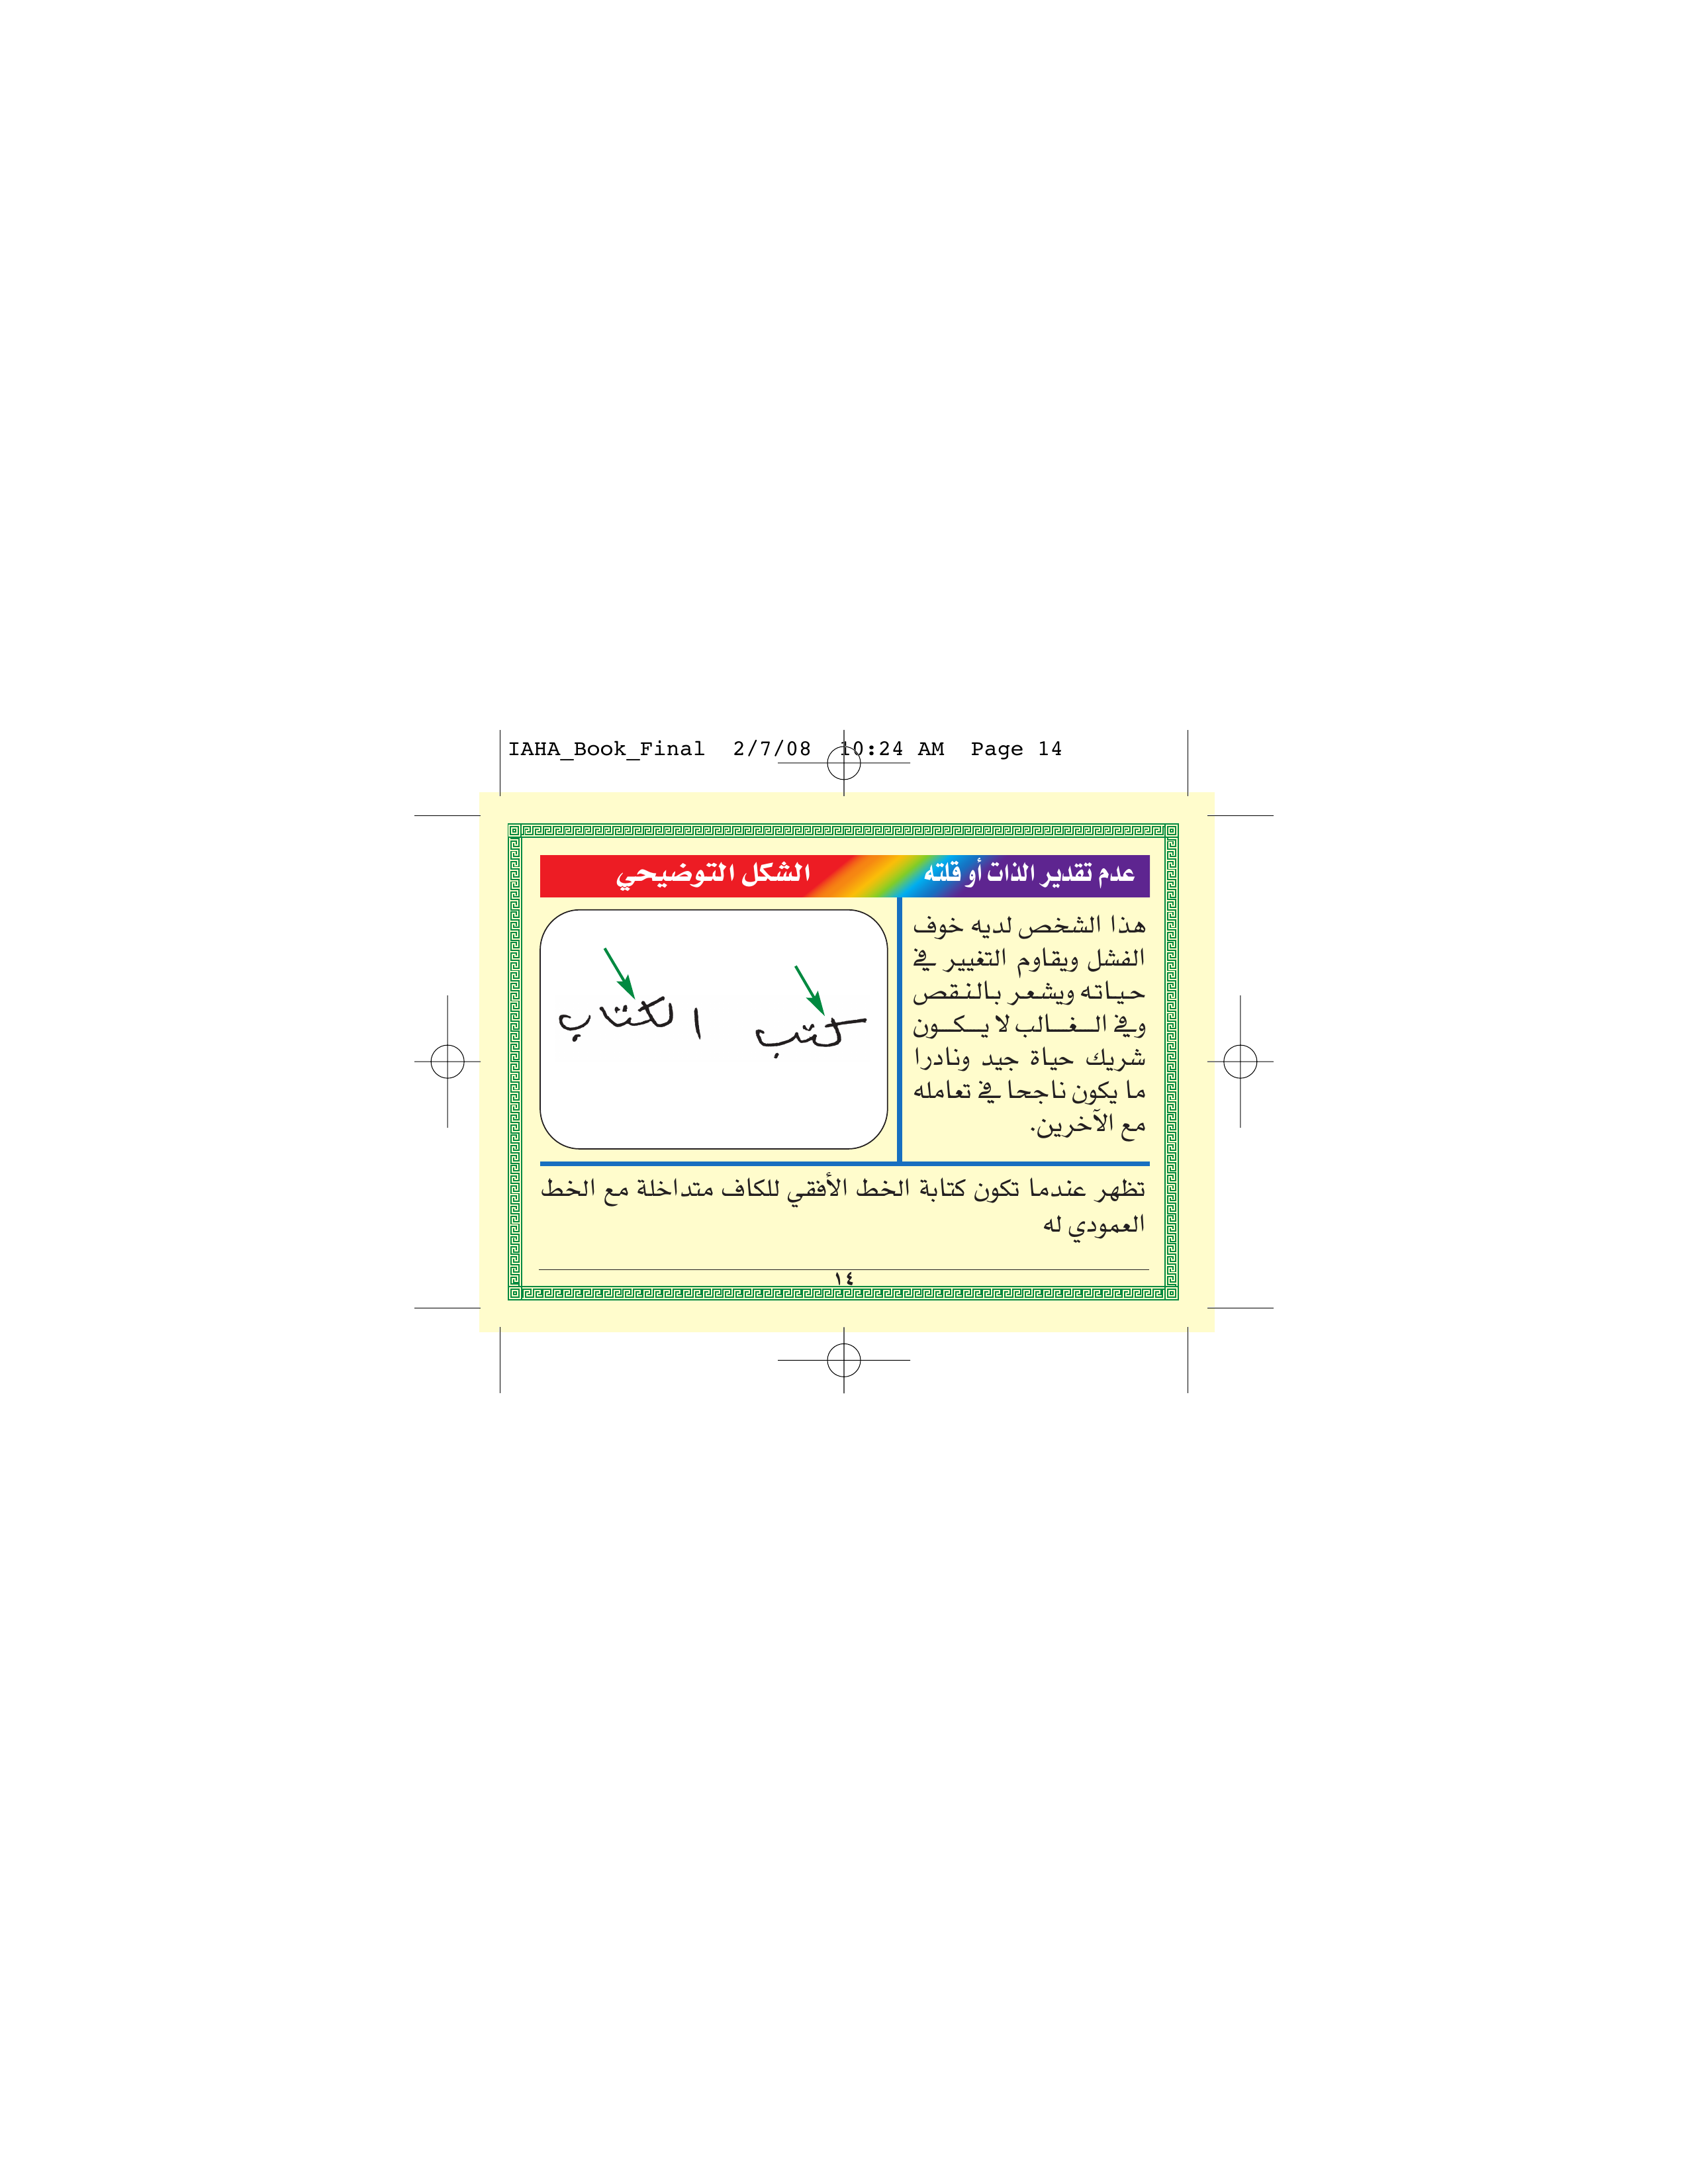 IAHA_Book_Final 2/7/08 10:24 AM Page 14
عدم تقدير الذات أو قلته
الشكل التوضيحي
هذا الشخص لديه خوف
الفشل ويقاوم التغيير في
حياته ويشعر بالنقص
وفي الغالب لا يكون
شريك حياة جيد ونادرا
ما يكون ناجحا في تعامله
مع الآخرين.
كتب
الكتاب
تظهر عندما تكون كتابة الخط الأفقي للكاف متداخلة مع الخط
العمودي له
١٤